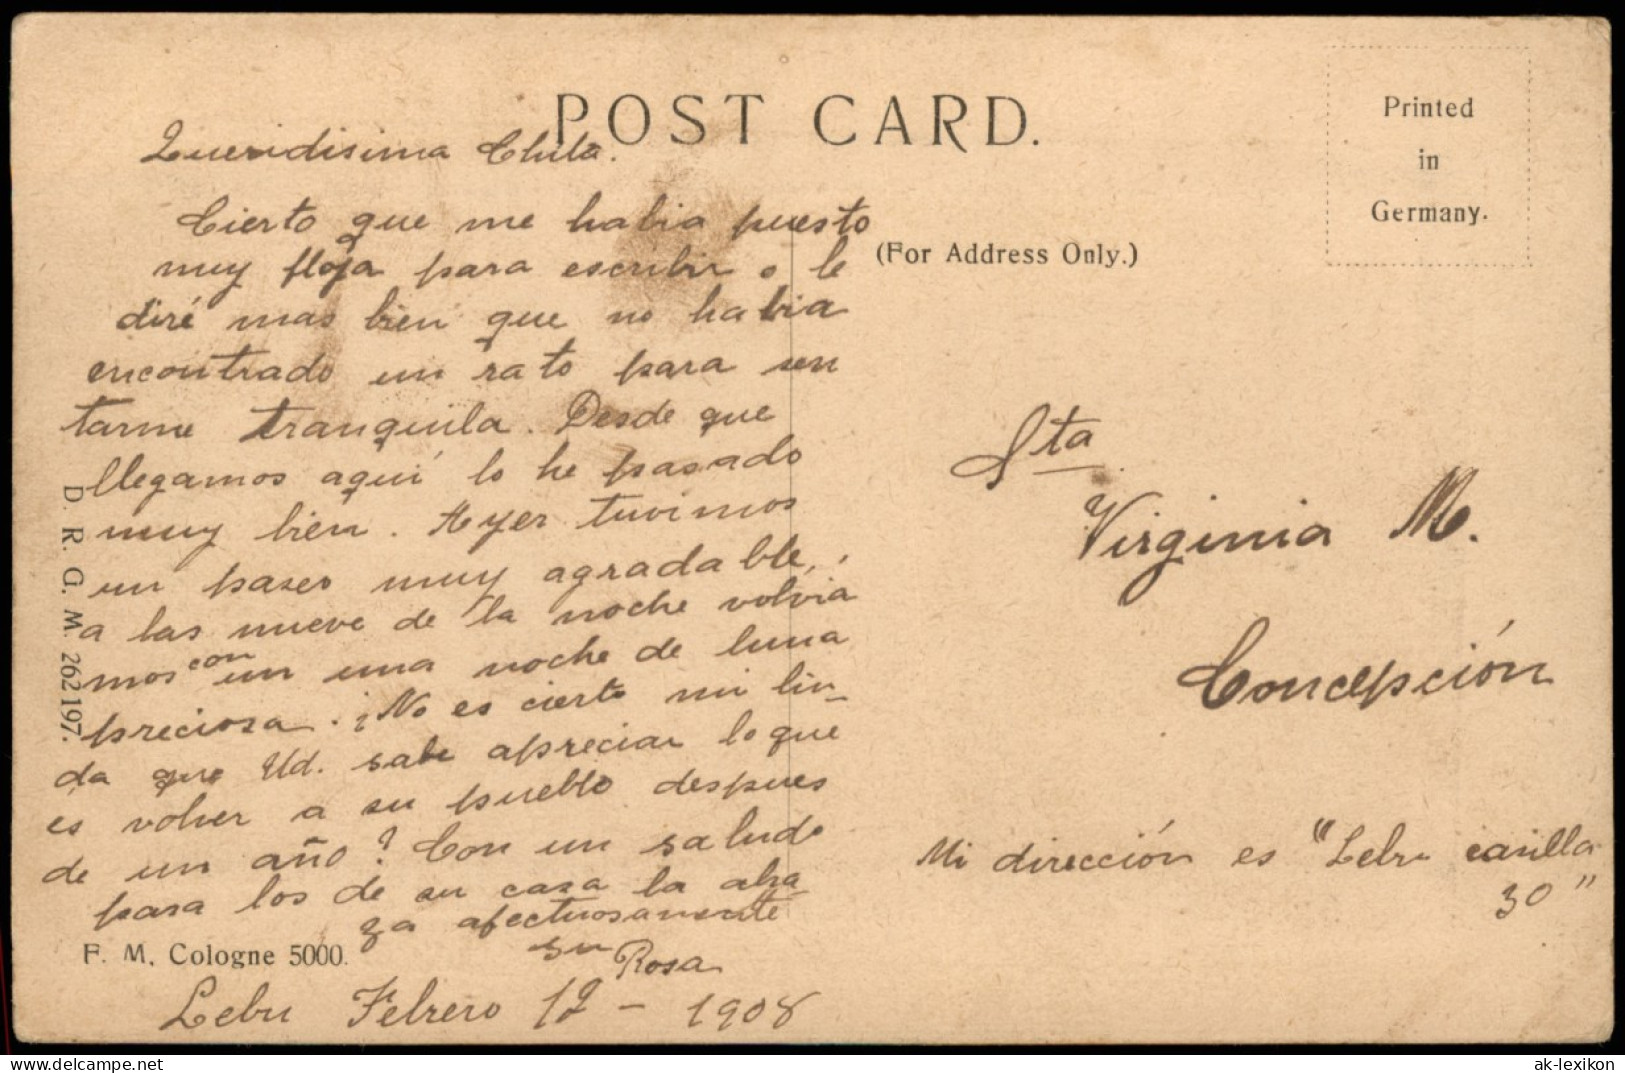 POST CARD.
Printed
in
Germany.
(For Address Only.)
Queridisima Chila.
Cierto que me habia puesto
muy floja para escribir o le
diré mas bien que no habia
encontrado un rato para sen
tarme tranquila. Desde que
llegamos aquí lo he pasado
muy bien. Ayer tuvimos
un paseo muy agradable,
a las nueve de la noche volvia
mos con una noche de luna
preciosa. ¿No es cierto mi lin_
da que Ud. sabe apreciar lo que
es volver a su pueblo despues
de un año? Con un saludo
para los de su casa la abra
za afectuosamente
su Rosa
Lebu Febrero 12 – 1908
D. R. G. M. 262197.
F. M. Cologne 5000.
Sta
Virginia M.
Concepción
Mi dirección es "Lebu casilla
30"
delcampe.net
ak-lexikon